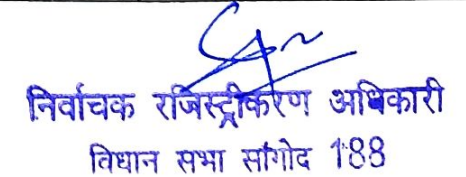 निर्वाचक रजिस्ट्रीकरण अधिकारी
विधान सभा सांगोद 188